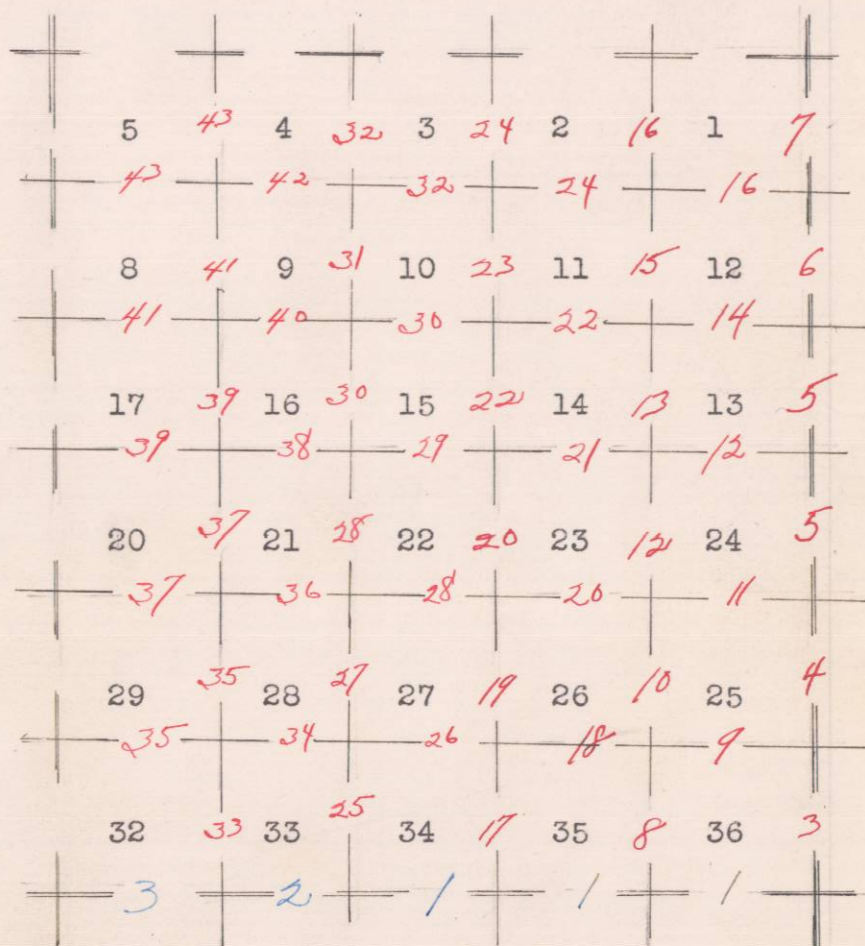 5 43 4 32 3 24 2 16 1 7
43 42 32 24 16
8 41 9 31 10 23 11 15 12 6
41 40 30 22 14
17 39 16 30 15 22 14 13 13 5
39 38 29 21 12
20 37 21 28 22 20 23 12 24 5
37 36 28 20 11
29 35 28 27 27 19 26 10 25 4
35 34 26 18 9
32 33 33 25 34 17 35 8 36 3
3 2 1 1 1